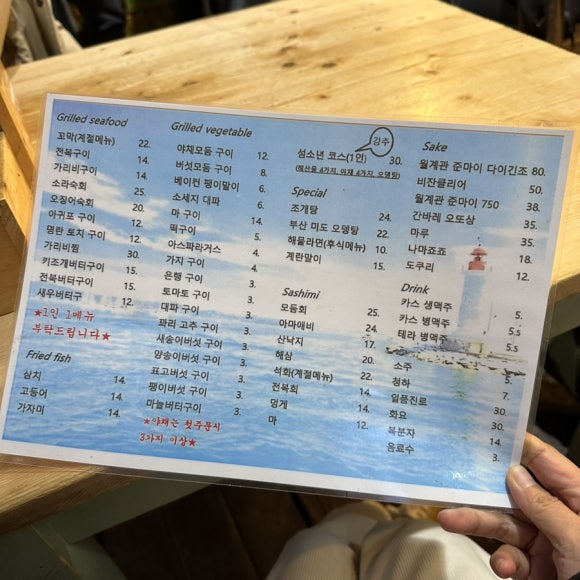 Grilled seafood
꼬막(계절메뉴) 22.
전복구이 14.
가리비구이 14.
소라숙회 25.
오징어숙회 20.
아귀포 구이 12.
명란 토치 구이 12.
가리비찜 30.
키조개버터구이 15.
전복버터구이 15.
새우버터구 12.
★1인 1메뉴
부탁드립니다★
Fried fish
삼치 14.
고등어 14.
가자미 14.
Grilled vegetable
야채모듬 구이 12.
버섯모듬 구이 8.
베이컨 팽이말이 6.
소세지 대파 6.
마 구이 14.
떡구이 5.
아스파라거스 4.
가지 구이 3.
은행 구이 3.
토마토 구이 3.
대파 구이 3.
꽈리 고추 구이 3.
새송이버섯 구이 3.
양송이버섯 구이 3.
표고버섯 구이 3.
팽이버섯 구이 3.
마늘버터구이 3.
★야채는 첫주문시
3가지 이상★
강추
섬소년 코스(1인) 30.
(해산물 4가지, 야채 4가지, 오뎅탕)
Special
조개탕 24.
부산 미도 오뎅탕 22.
해물라면(후식메뉴) 10.
계란말이 15.
Sashimi
모듬회 25.
아마애비 24.
산낙지 17.
해삼 20.
석화(계절메뉴) 22.
전복회 14.
멍게 14.
마 12.
Sake
월계관 준마이 다이긴조 80.
비잔클리어 50.
월계관 준마이 750 38.
간바레 오또상 35.
마루 35.
나마죠죠 18.
도쿠리 12.
Drink
카스 생맥주 5.
카스 병맥주 5.5
테라 병맥주 5.5
소주 5.
청하 7.
일품진로 30.
화요 30.
복분자 14.
음료수 3.